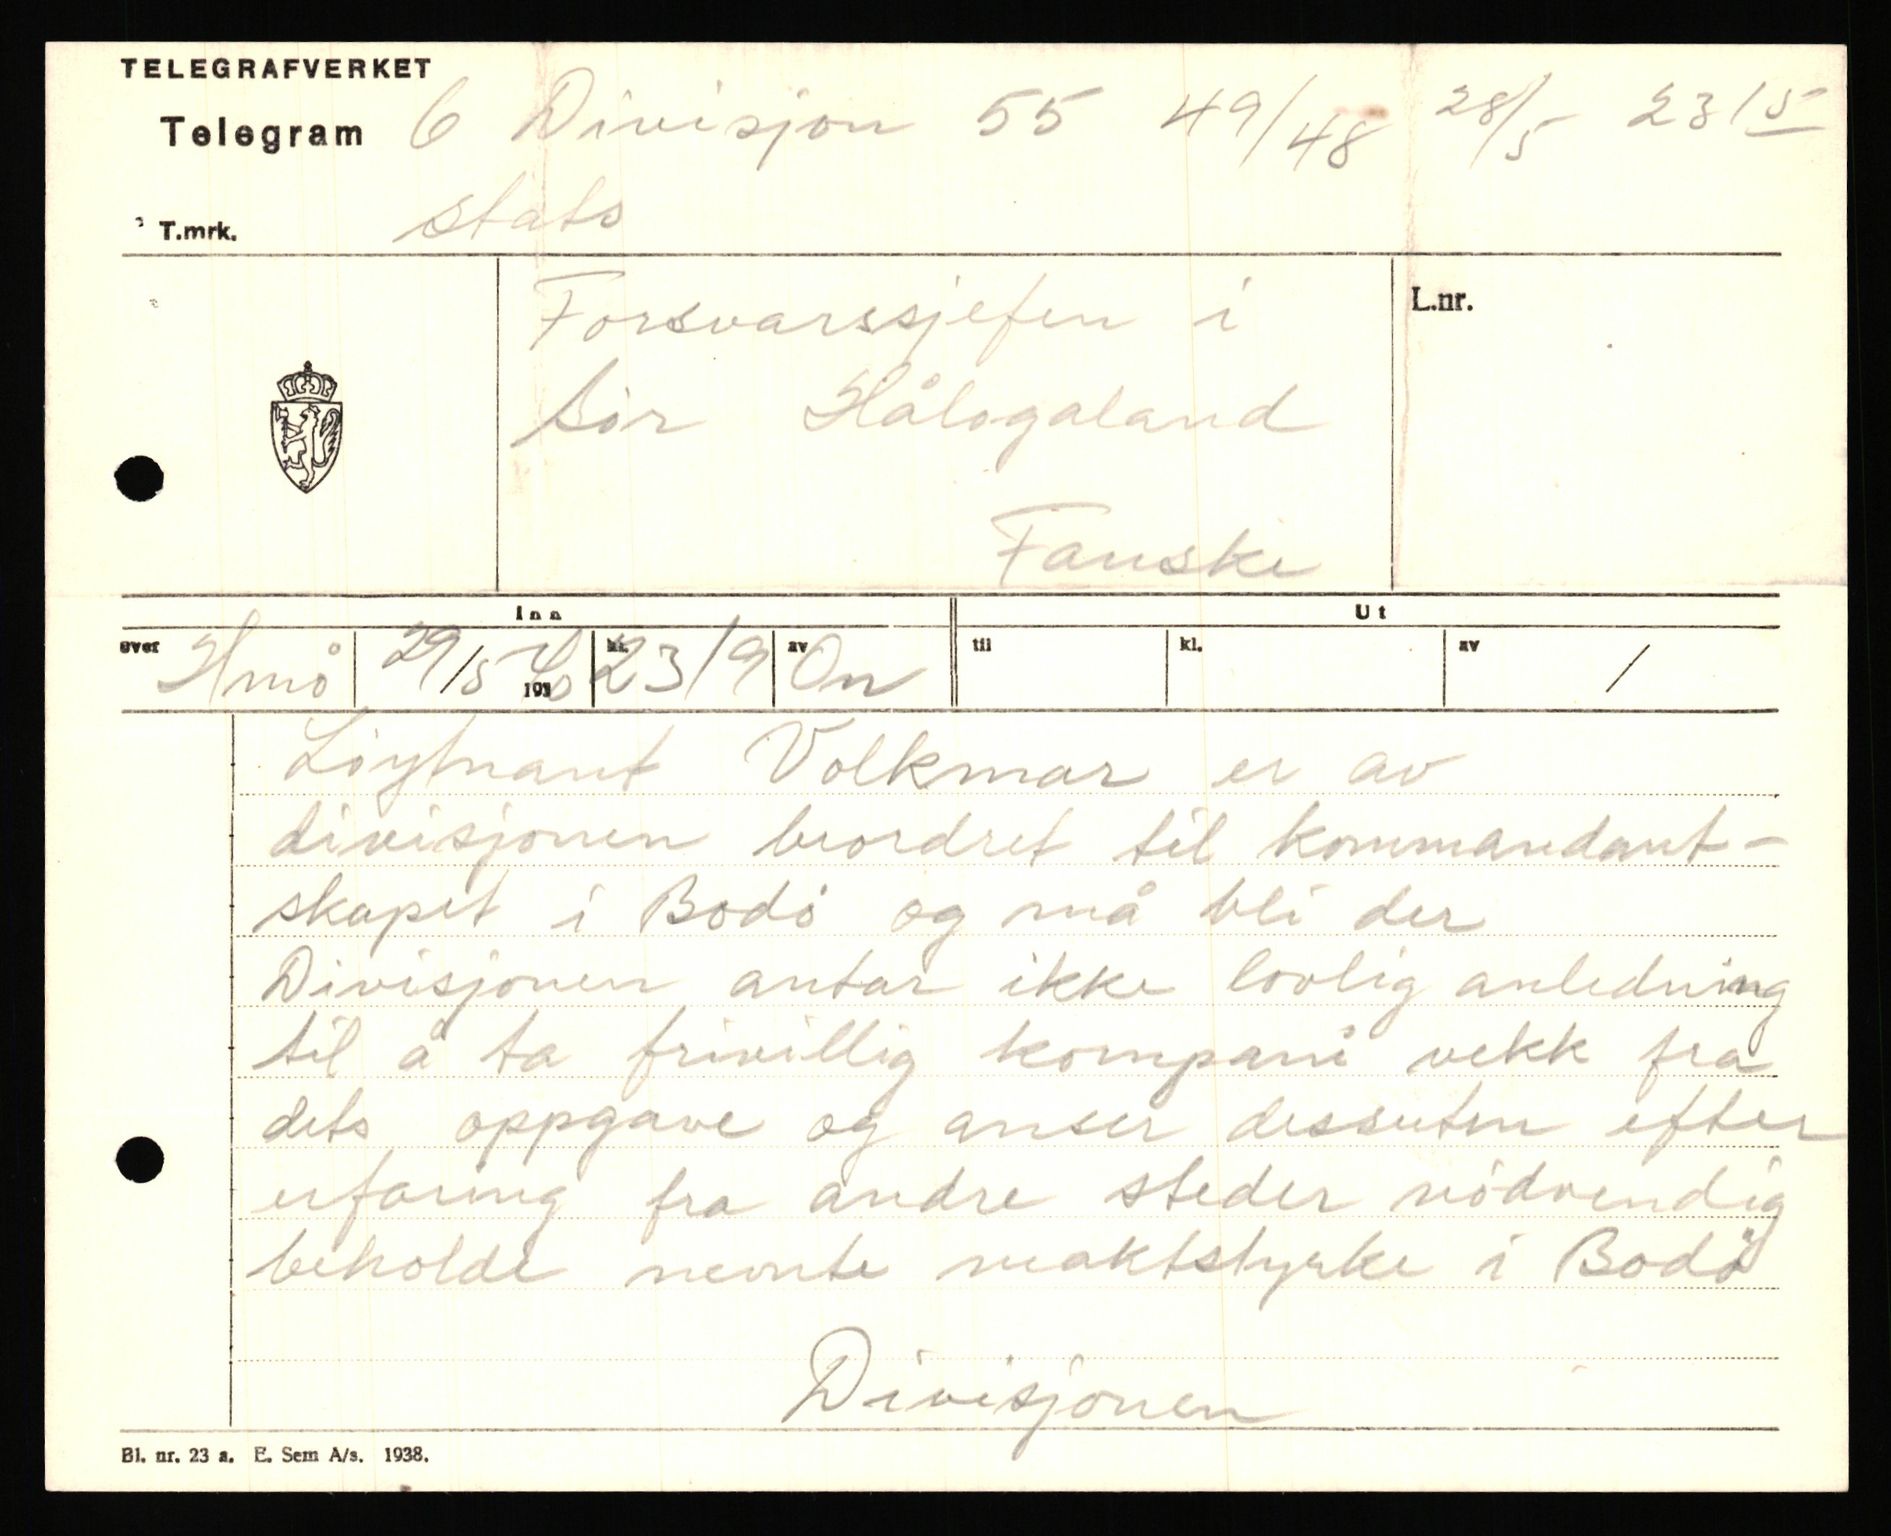 TELEGRAFVERKET
Telegram 6 Divisjon 55 49/48 28/5 2315
T.mrk. stats
Forsvarssjefen i
Sör Hålogaland
Fauske
L.nr.
Inn Ut
over Hmö 29/5 1940 kl. 23/9 av On til kl. av /
Löytnant Volkmar er av
divisjonen beordret til kommandant-
skapet i Bodö og må bli der
Divisjonen antar ikke lovlig anledning
til å ta frivillig kompani vekk fra
dets oppgave og anser dessuten efter
erfaring fra andre steder nödvendig
beholde nevnte maktstyrke i Bodö
Divisjonen
Bl. nr. 23 a. E. Sem A/s. 1938.